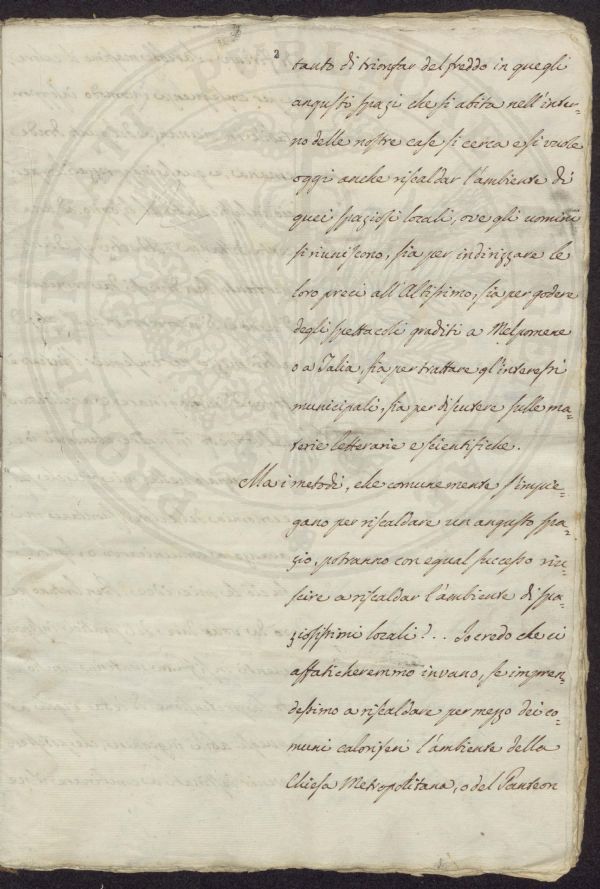 2
tanto di trionfar del freddo in quegli
angusti spazi che si abita nell'inter-
no delle nostre case si cerca e si vuole
oggi anche riscaldar l'ambiente di
quei spaziosi locali, ove gli uomini
si riuniscono, sia per indirizzare le
loro preci all'Altissimo, sia per godere
degli spettacoli graditi a Melpomene
o a Talia, sia per trattare gl'interessi
municipali, sia per discutere sulle ma-
terie letterarie e scientifiche.
Ma i metodi, che comunemente s'impie-
gano per riscaldare un angusto spa-
zio, potranno con egual successo riu-
scire a riscaldar l'ambiente di spa-
ziosissimi locali?.. Io credo che ci
affaticheremmo invano, se impren-
dessimo a riscaldare per mezzo dei co-
muni caloriferi l'ambiente della
Chiesa Metropolitana, o del Panteon